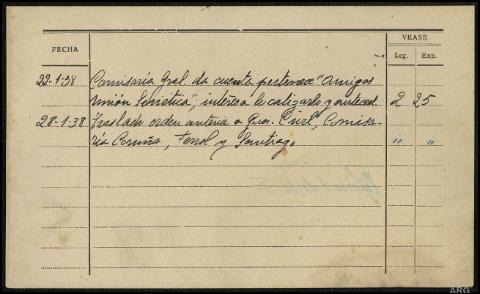 VEASE
FECHA Leg. Exp.
22-1-38 Comisaría Gral. da cuenta pertenece "Amigos
Unión Soviética", interesa localizarlo y anteced. 2 25
28-1-38. Traslado orden anterior a Gua. Civil, Comisa-
ría Coruña, Ferrol y Santiago " "
ARG